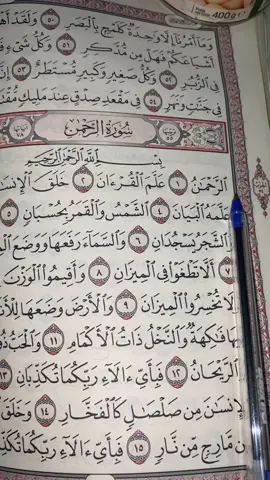 400g
وَمَآ أَمْرُنَآ إِلَّا وَٰحِدَةٌ كَلَمْحٍۭ بِٱلْبَصَرِ ٥٠ وَلَقَدْ
أَشْيَاعَكُمْ فَهَلْ مِن مُّدَّكِرٍ ٥١ وَكُلُّ شَىْءٍ
فِى ٱلزُّبُرِ ٥٢ وَكُلُّ صَغِيرٍ وَكَبِيرٍ مُّسْتَطَرٌ ٥٣
فِى جَنَّٰتٍ وَنَهَرٍ ٥٤ فِى مَقْعَدِ صِدْقٍ عِندَ مَلِيكٍ
سُورَةُ الرَّحْمَٰن
بِسْمِ ٱللَّهِ ٱلرَّحْمَٰنِ ٱلرَّحِيمِ
ٱلرَّحْمَٰنُ ١ عَلَّمَ ٱلْقُرْءَانَ ٢ خَلَقَ
عَلَّمَهُ ٱلْبَيَانَ ٤ ٱلشَّمْسُ وَٱلْقَمَرُ بِحُسْبَانٍ ٥
وَٱلشَّجَرُ يَسْجُدَانِ ٦ وَٱلسَّمَآءَ رَفَعَهَا وَوَضَعَ
٧ أَلَّا تَطْغَوْا۟ فِى ٱلْمِيزَانِ ٨ وَأَقِيمُوا۟ ٱلْوَزْنَ
وَلَا تُخْسِرُوا۟ ٱلْمِيزَانَ ٩ وَٱلْأَرْضَ وَضَعَهَا
فَٰكِهَةٌ وَٱلنَّخْلُ ذَاتُ ٱلْأَكْمَامِ ١١ وَٱلْحَبُّ
ٱلرَّيْحَانُ ١٢ فَبِأَىِّ ءَالَآءِ رَبِّكُمَا تُكَذِّبَانِ ١٣
ٱلْإِنسَٰنَ مِن صَلْصَٰلٍ كَٱلْفَخَّارِ ١٤ وَخَلَقَ
مِن مَّارِجٍ مِّن نَّارٍ ١٥ فَبِأَىِّ ءَالَآءِ رَبِّكُمَا